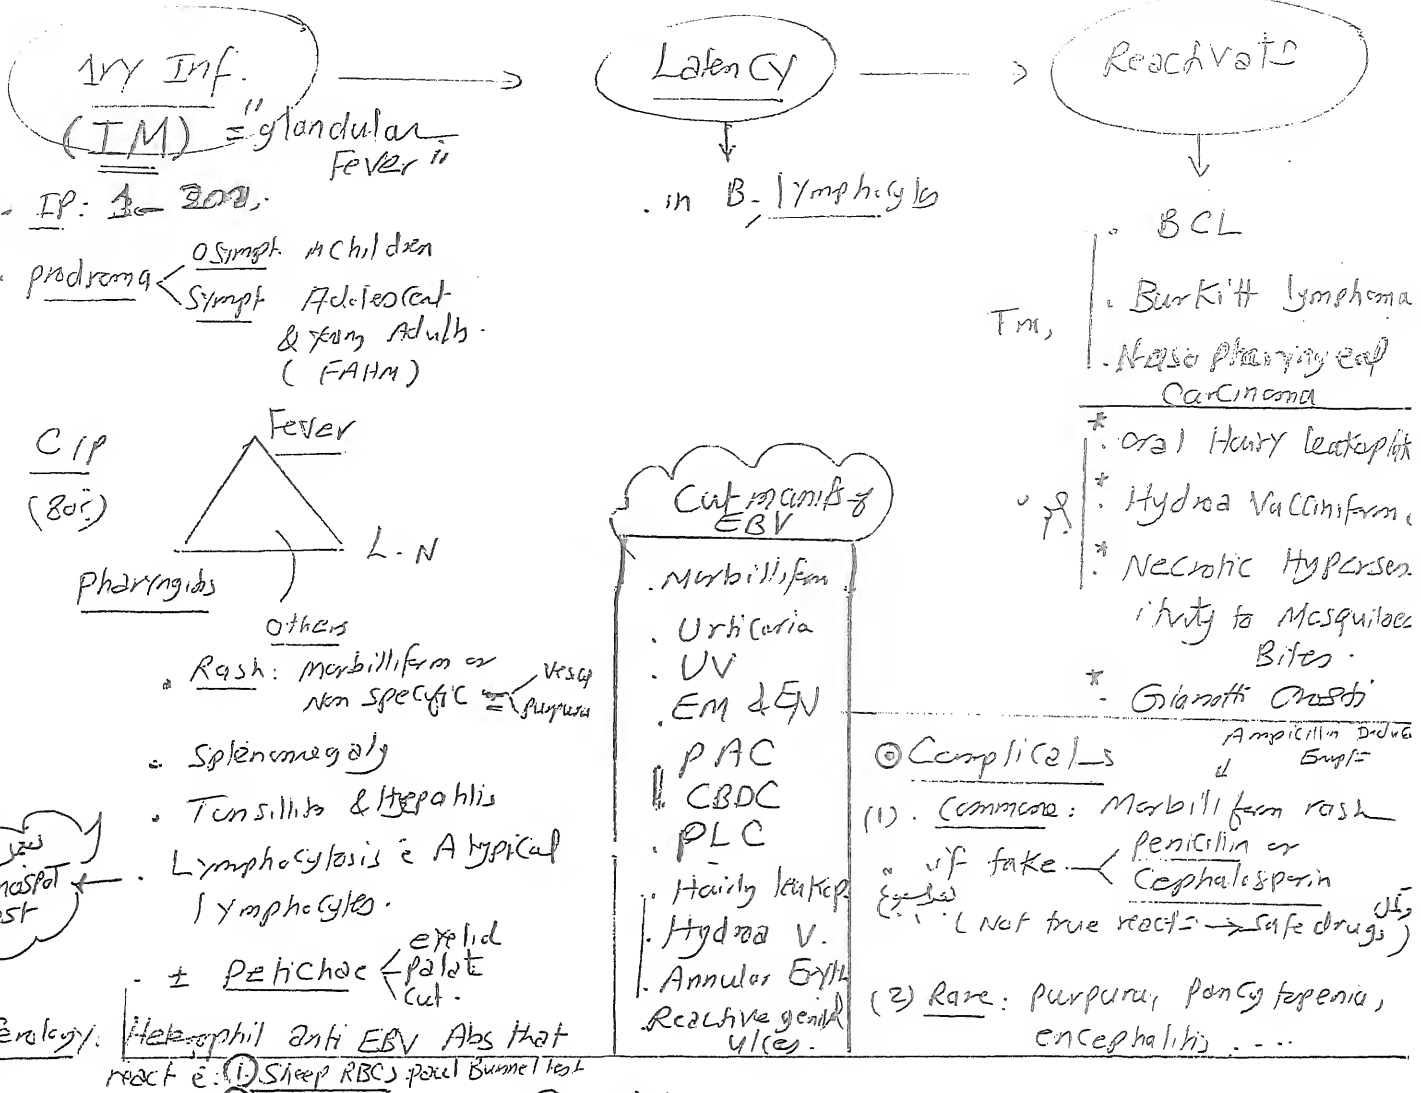 1ry Inf.
(IM) = "glandular
Fever"
- IP: 1-
. prodroma
osympt. in children
Sympt Adolescent
& young Adults.
( FAHM )
C/P
(80%)
Fever
Pharyngitis
L.N
others
. Rash: Morbilliform or
Non specific =
Vesc
purpura
. Splenomegaly
. Tonsillitis & Hepatitis
. Lymphocytosis c Atypical
lymphocytes.
nospot
est
. ± petichae
eyelid
palat
cut.
erology: Heterophil anti EBV Abs that
react c: (1) Sheep RBCs paul Bunnel test
Latency
. in B- lymphocytes
Cut manifs of
EBV
. Morbilliform
. Urticaria
. UV
. EM & EN
. PAC
CBDC
. PLC
. Hairly leukop.
. Hydroa V.
. Annular Eryth
. Reactive genital
ulces.
Reactivat=
. BCL
. Burkitt lymphoma
. Nasopharyngeal
Carcinoma
Tm,
* . oral Hairy leukoplak
* . Hydroa Vacciniform.
* . Necrotic Hypersen
itivity to Mosquitoes
Bites.
* - Gianotti Crosti
Complicat=s
Ampicillin Induc
Erupt=
(1) . Common: Morbilliform rash
. if take
penicillin or
Cephalosporin
( Not true react= → safe drugs )
(2) Rare: purpura, pancytopenia,
encephalitis ....